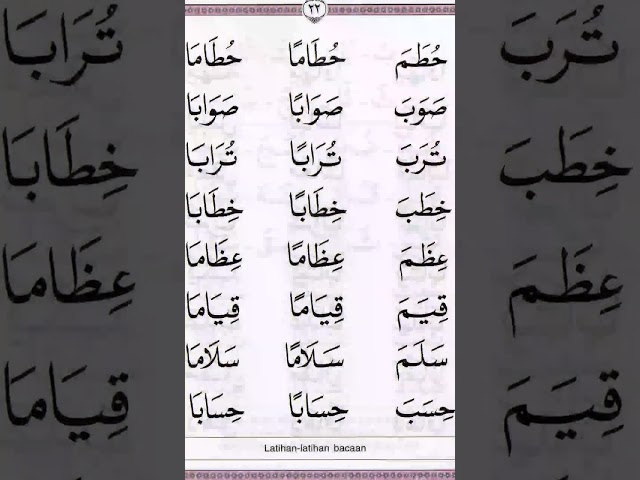 ٢٢
حُطَمَ حُطَامًا حُطَامَا
صَوَبَ صَوَابًا صَوَابَا
تُرَبَ تُرَابًا تُرَابَا
خِطَبَ خِطَابًا خِطَابَا
عِظَمَ عِظَامًا عِظَامَا
قِيَمَ قِيَامًا قِيَامَا
سَلَمَ سَلَامًا سَلَامَا
حِسَبَ حِسَابًا حِسَابَا
Latihan-latihan bacaan